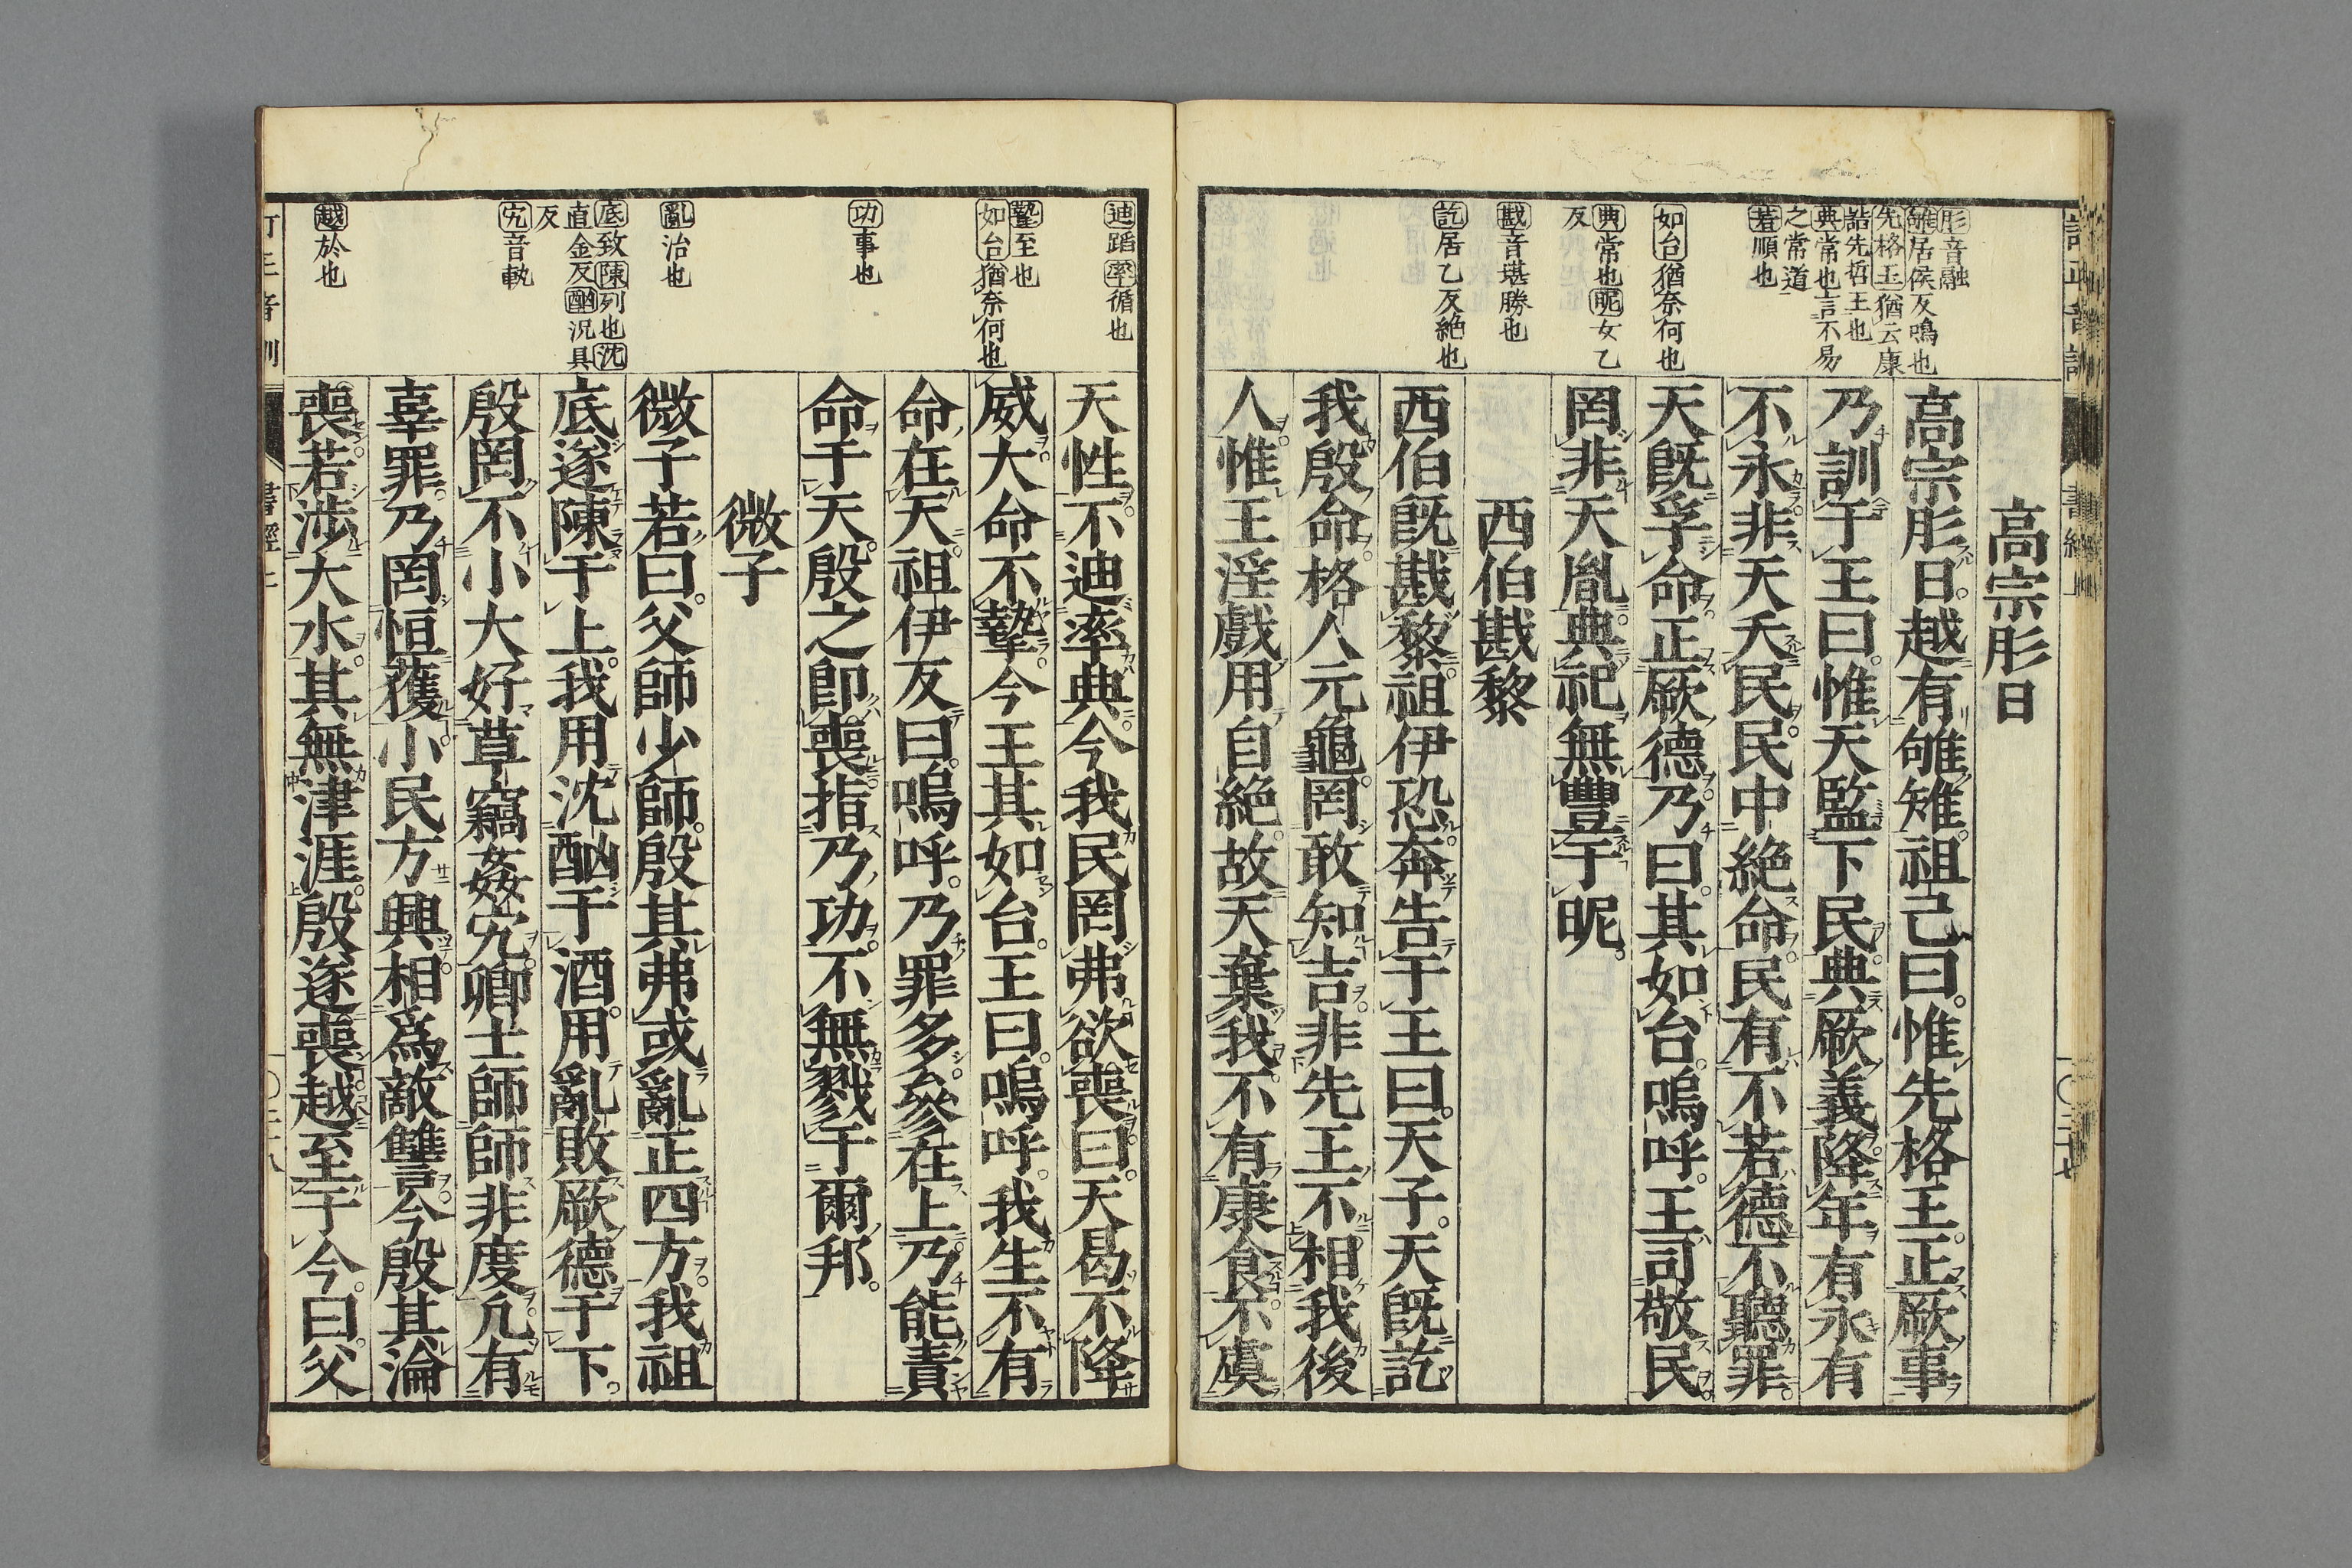 彤音融
雊居侯反鳴也
先格王猶云康
誥先哲王也
典常也言不易
之常道
若順也
如台猶奈何也
典常也昵女乙
反
戡音堪勝也
訖居乙反絶也
高宗肜日
高宗肜日越有雊雉祖己曰惟先格王正厥事
乃訓于王曰惟天監下民典厥義降年有永有
不永非天夭民民中絶命民有不若德不聽罪
天旣孚命正厥德乃曰其如台嗚呼王司敬民
罔非天胤典祀無豐于昵
西伯戡黎
西伯旣戡黎祖伊恐奔告于王曰天子天旣訖
我殷命格人元龜罔敢知吉非先王不相我後
人惟王淫戲用自絶故天棄我不有康食不虞
迪蹈率循也
摯至也
如台猶奈何也
功事也
亂治也
底致陳列也沈
直金反酗況具
反
宄音軌
越於也
天性不迪率典今我民罔弗欲喪曰天曷不降
威大命不摯今王其如台王曰嗚呼我生不有
命在天祖伊反曰嗚呼乃罪多參在上乃能責
命于天殷之卽喪指乃功不無戮于爾邦
微子
微子若曰父師少師殷其弗或亂正四方我祖
底遂陳于上我用沈酗于酒用亂敗厥德于下
殷罔不小大好草竊姦宄卿士師師非度凡有
辜罪乃罔恒獲小民方興相爲敵讐今殷其淪
喪若涉大水其無津涯殷遂喪越至于今曰父